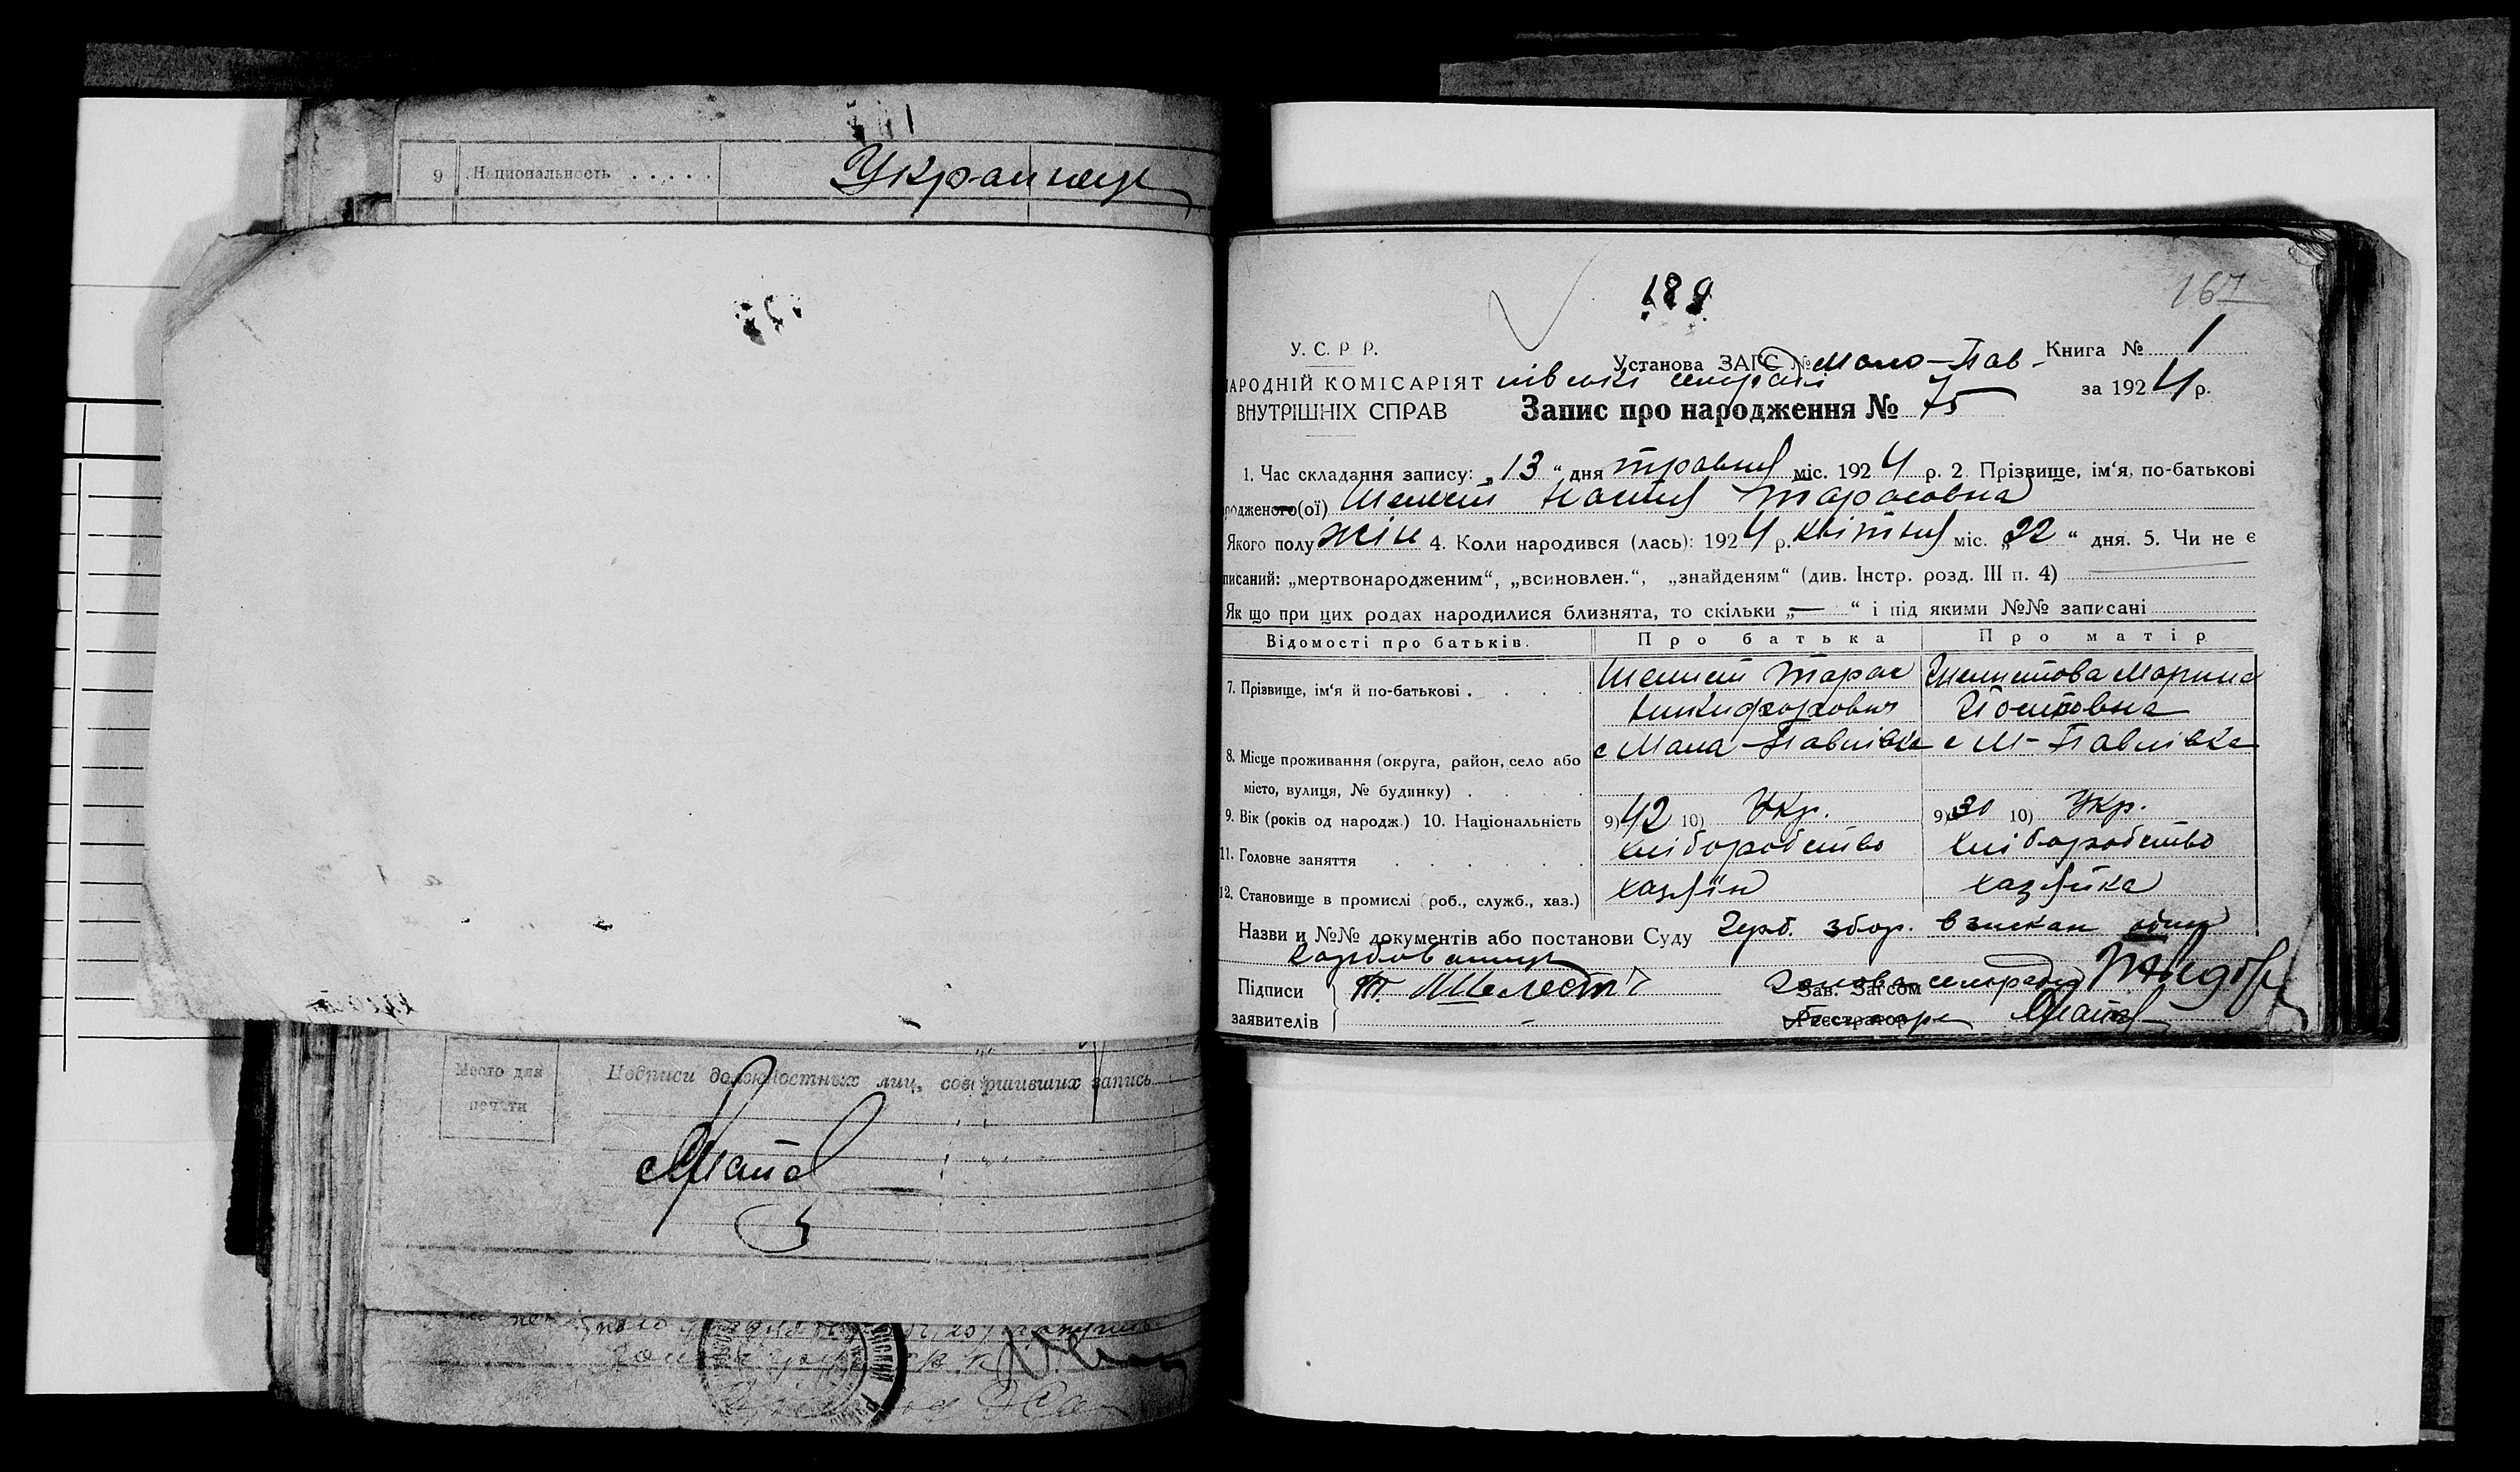 9 Национальность . . . . . Украинец
Место для
печати
Подписи должностных лиц, совершивших запись
189
167
У. С. Р. Р.
Установа ЗАГС № Мало-Пав-
Книга № 1
НАРОДНІЙ КОМІСАРІЯТ
лівській сельраді
за 1924 р.
ВНУТРІШНІХ СПРАВ
Запис про народження № 75
1. Час складання запису: „13“ дня травня міс. 1924 р. 2. Прізвище, ім‘я, по-батькові
родженого(ої) Шелест Настя Тарасовна
Якого полу жін 4. Коли народився (лась): 1924 р. квітня міс. „22“ дня. 5. Чи не є
писаний: „мертвонародженим“, „всиновлен.“, „знайденям“ (див. Інстр. розд. III п. 4)
Як що при цих родах народилися близнята, то скільки „—“ і під якими №№ записані
Відомості про батьків. Про батька Про матір
7. Прізвище, ім‘я й по-батькові . . . . Шелест Тарас Шелестова Марина
Никифорович Йосиповна
с Мала-Павлівка с М-Павлівка
8. Місце проживання (округа, район, село або
місто, вулиця, № будинку) . . .
9. Вік (років од народж.) 10. Національність 9) 42 10) Укр. 9) 30 10) Укр.
11. Головне заняття . . . . . . хліборобство хліборобство
12. Становище в промислі (роб., служб., хаз.) хазяїн хазяйка
Назви и №№ документів або постанови Суду Герб. збор. взискан один
карбованець
Підписи Т. Шелест Зав. Загсом Голова сельради
заявителів Реєстратор Секретарь